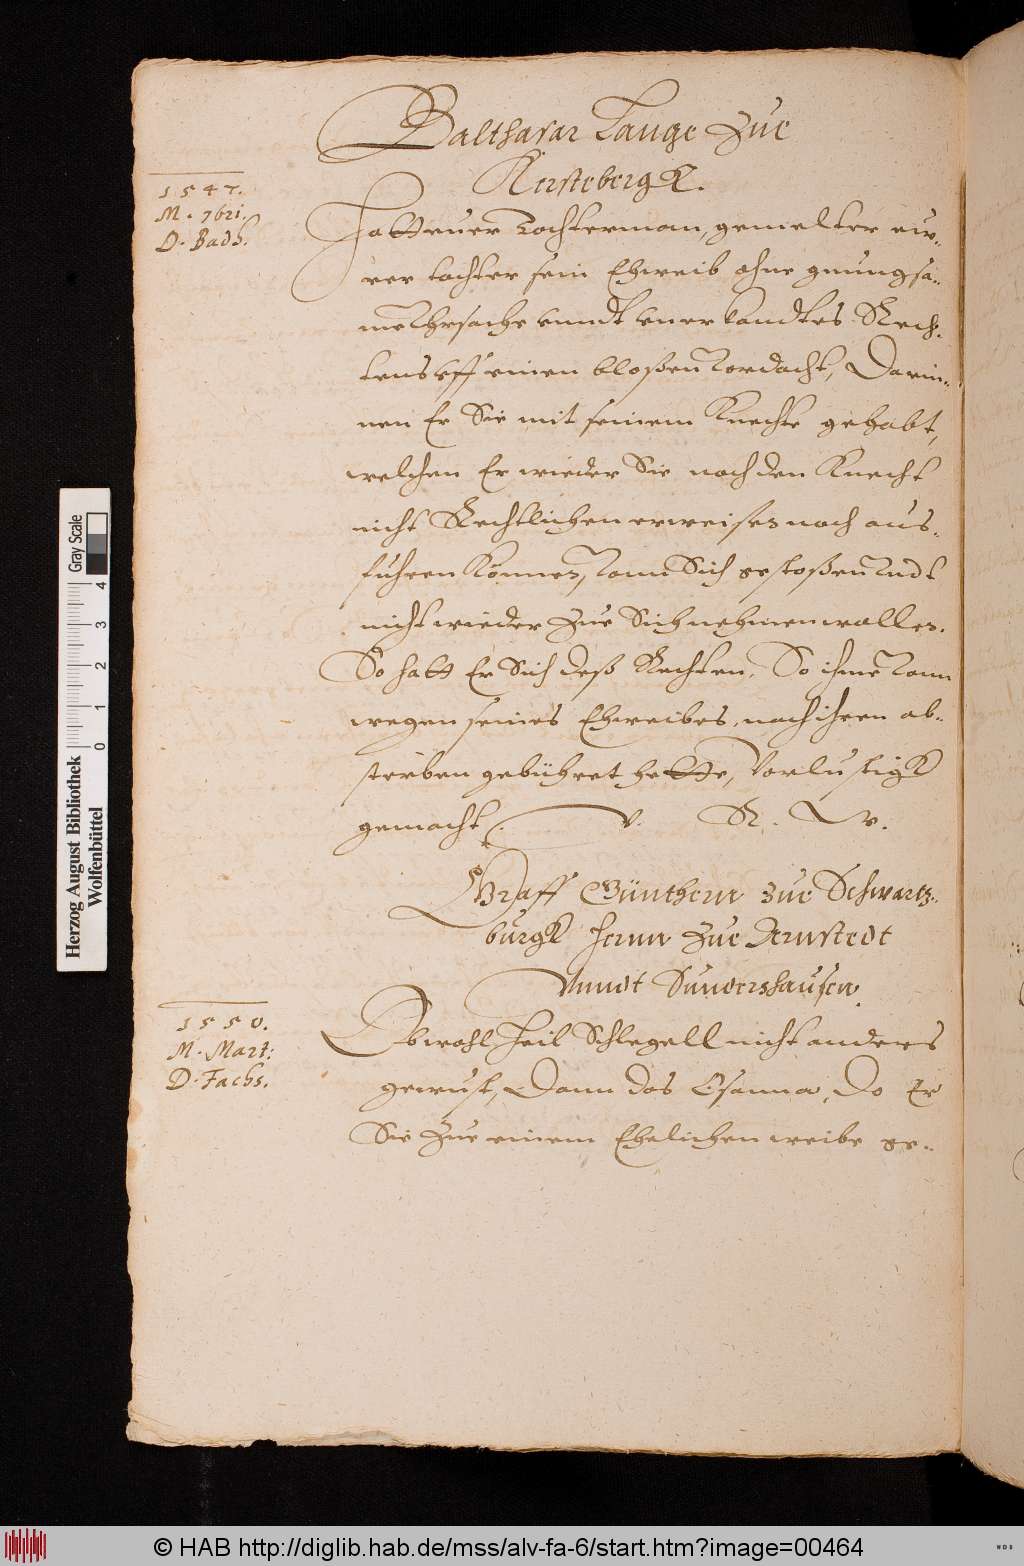 Balthasar Lange zue
Kerstebergk.
1547.
M. 7bri.
D. Badh.
Hatt euer Tochterman, gemelter eu-
rer tochter sein Eheweib ohne gnungsa-
me Uhrsache unndt unerkandtes Rech-
tens uff einen bloßen Vordacht, Darin-
nen Er Sie mit seinem Knechte gehabt,
welchen Er wieder Sie noch den Knecht
nicht Rechtlichen erweisen noch aus-
fuhren können, Vonn Sich gestoßen Undt
nicht wieder zue Sich nehmen wollen.
So hatt Er Sich deß Rechten, So ihme Vonn
wegen seines Eheweibes, nach ihren ab-
sterben gebühret hette, Vorlustigk
gemacht. V. R. W.
Graff Günthern zue Schwartz-
burgk Hernn zue Arnstedt
Unndt Sundershausen.
1550.
M. Mart:
D. Fachs.
Obwohl Heil Schlegell nicht anders
gewust, Dann das Osanna, Do Er
Sie zue einem Ehelichen weibe ge-
Herzog August Bibliothek
Wolfenbüttel
0 1 2 3 4
Gray Scale
© HAB http://diglib.hab.de/mss/alv-fa-6/start.htm?image=00464